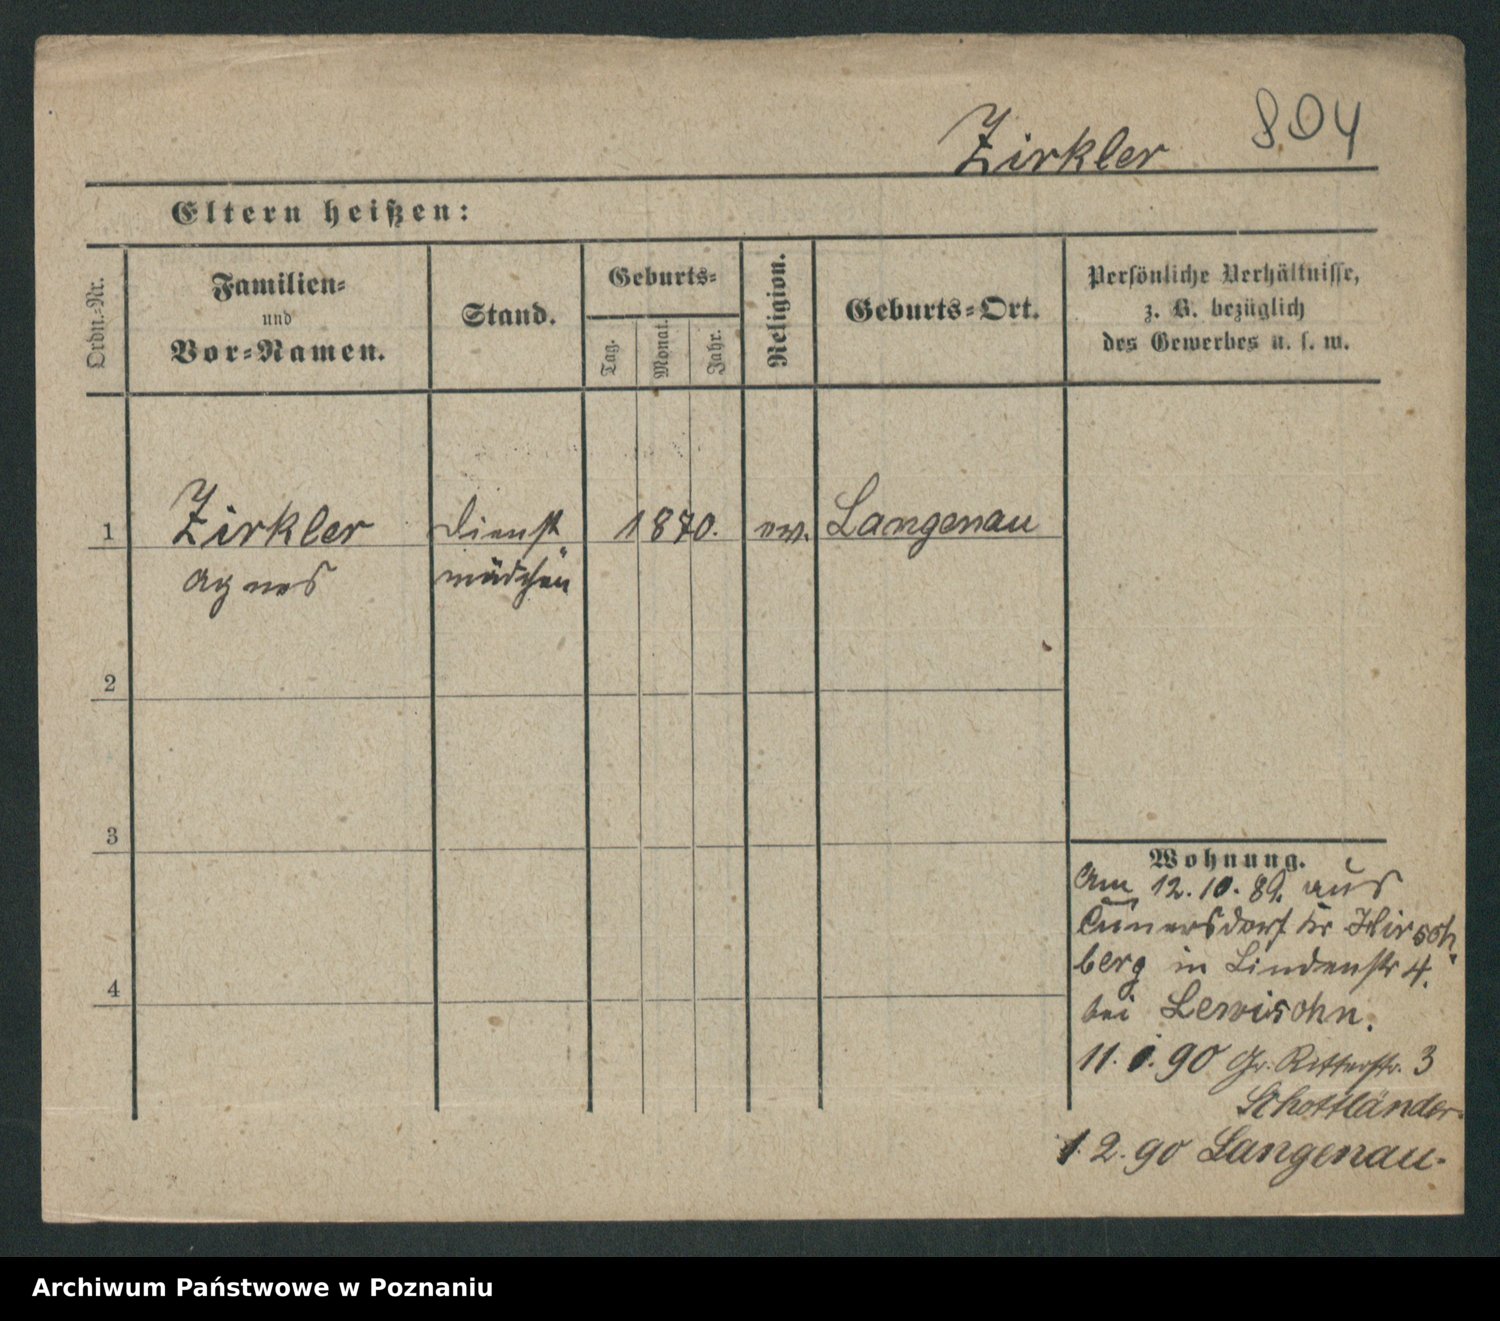 804
Zirkler
Eltern heißen:
Ordn.-Nr.
Familien-
und
Vor-Namen.
Stand.
Geburts-
Tag.
Monat.
Jahr.
Religion.
Geburts-Ort.
Persönliche Verhältnisse,
z. B. bezüglich
des Gewerbes u. s. w.
1
Zirkler
Agnes
Dienst
mädchen
1870.
ev.
Langenau
2
3
4
Wohnung.
Am 12.10.89. aus
Cunersdorf Kr Hirsch
berg in Lindenstr 4.
bei Lewisohn.
11.1.90 Gr. Ritterstr. 3
Schottländer.
1.2.90 Langenau.
Archiwum Państwowe w Poznaniu